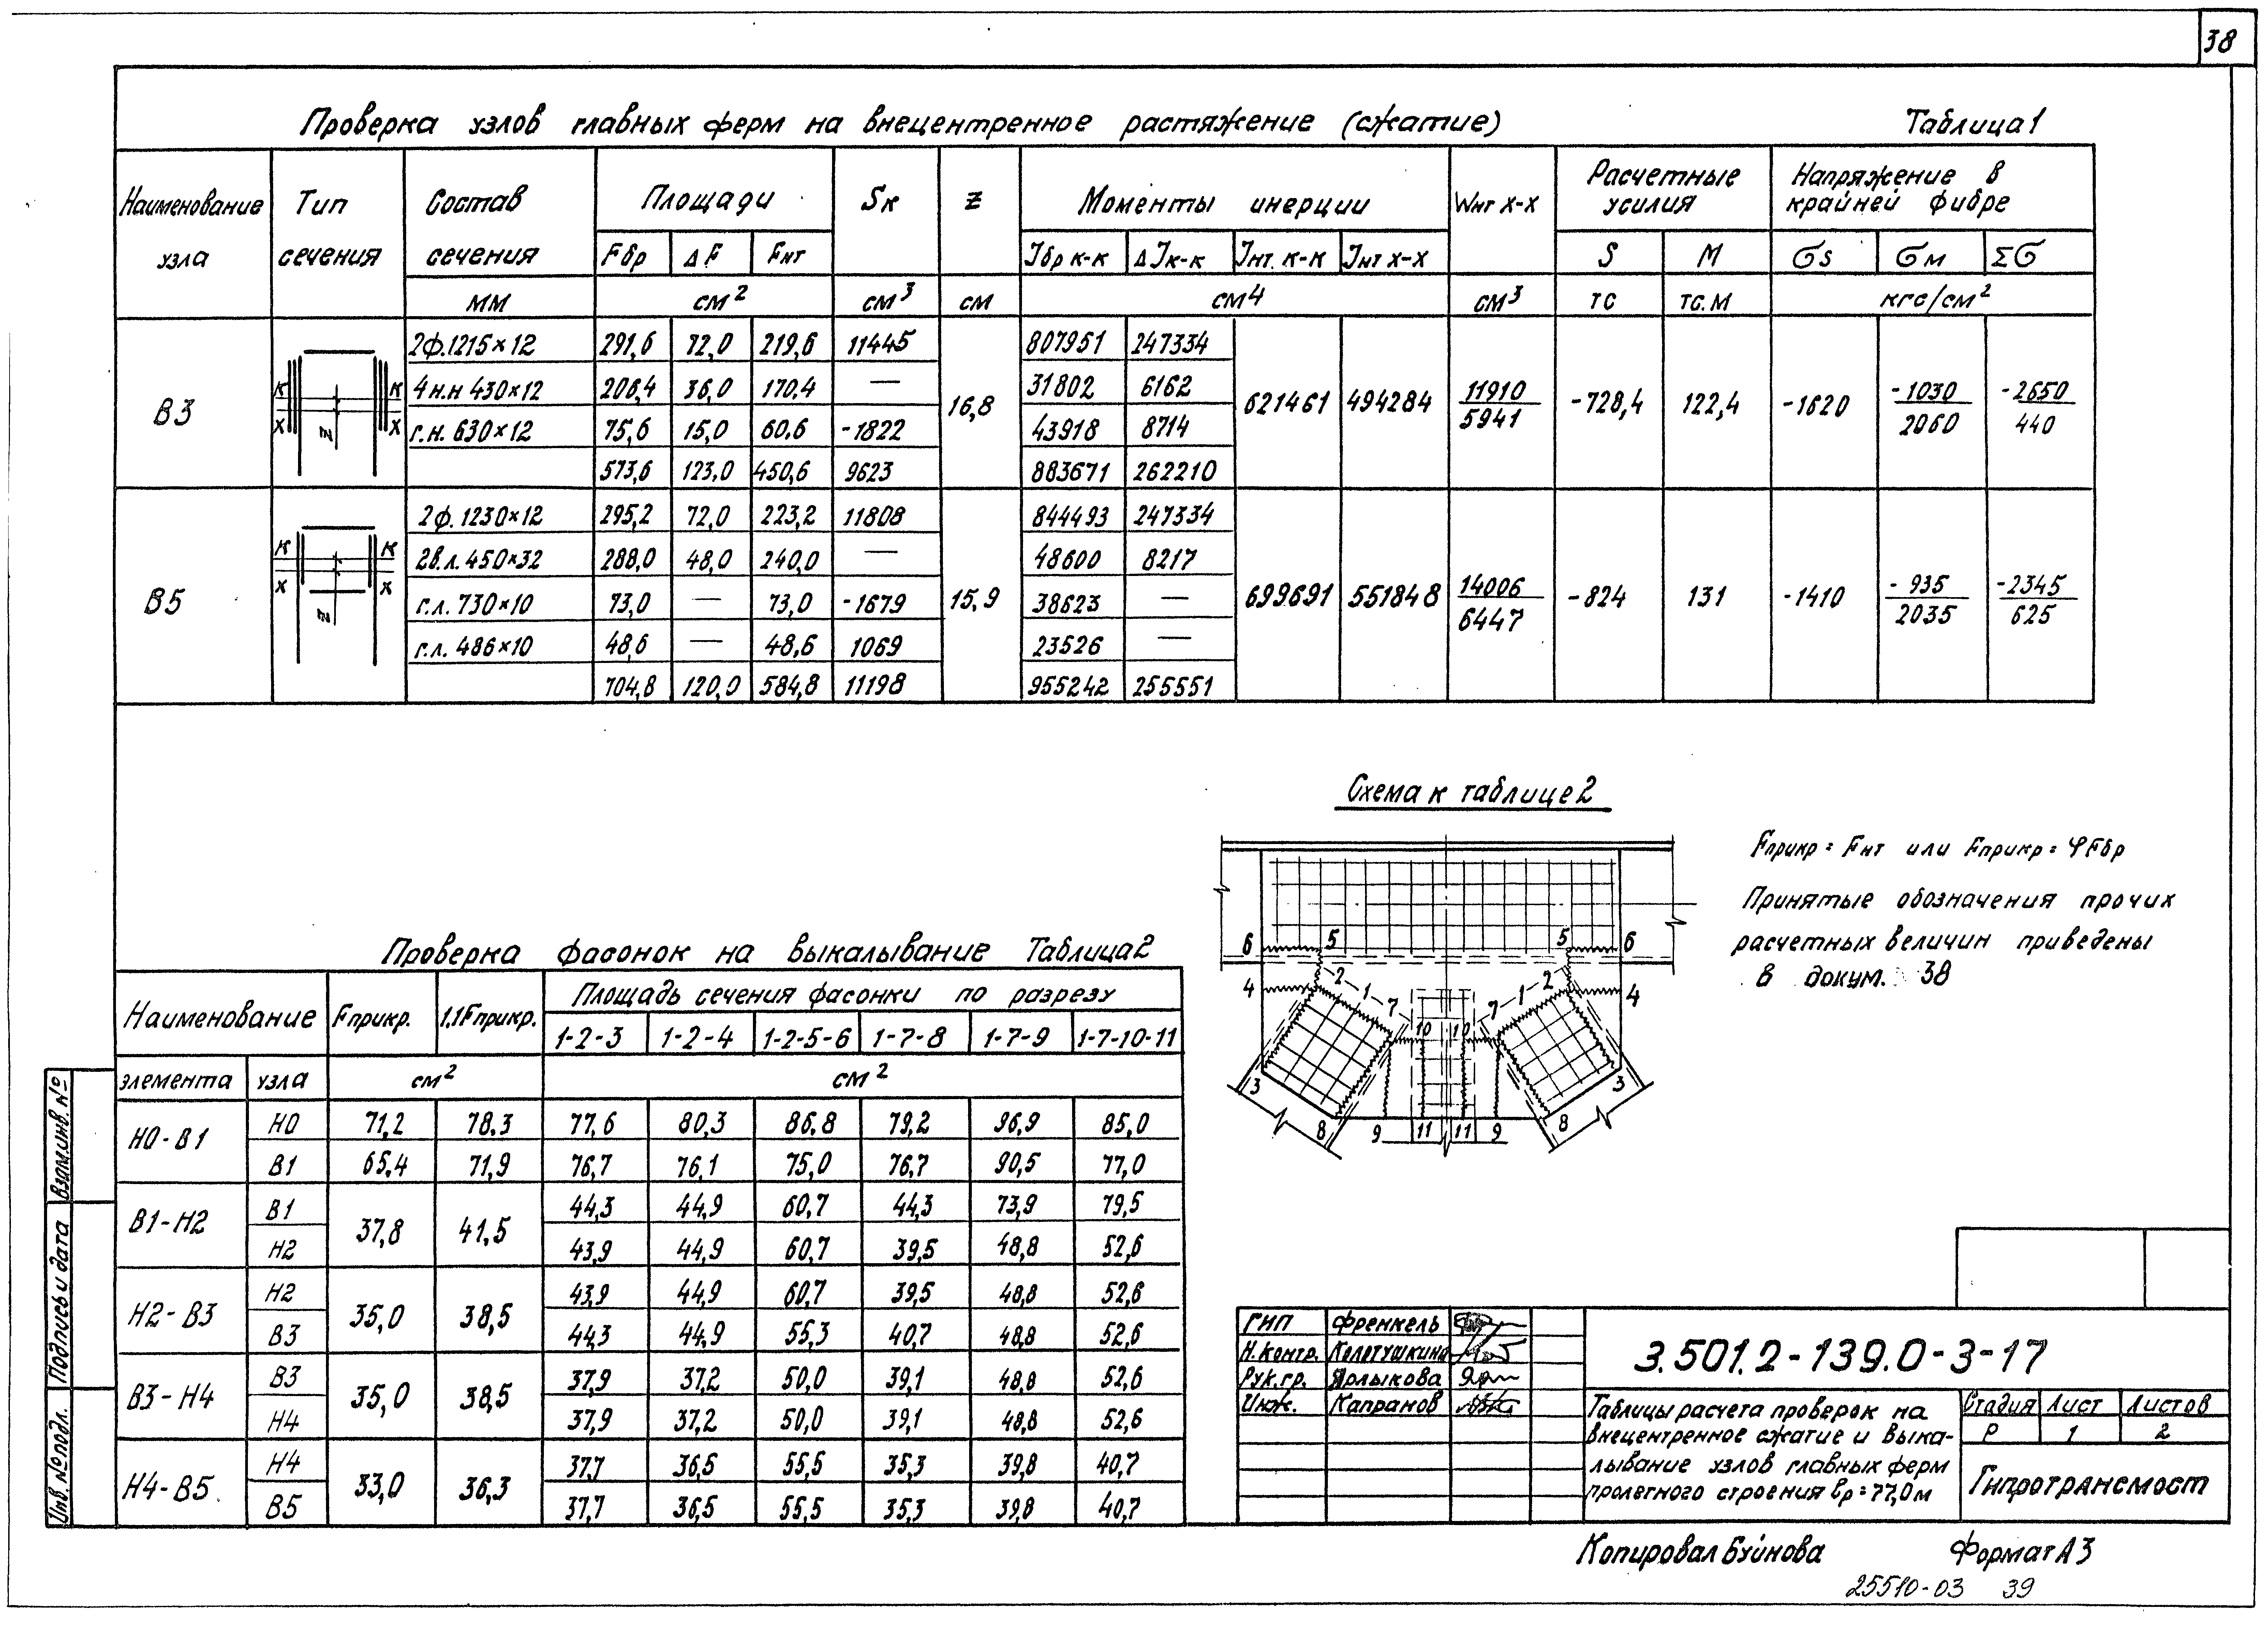 38
Проверка узлов главных ферм на внецентренное растяжение (сжатие) Таблица 1
Наименование узла Тип сечения Состав сечения Площади Sк z Моменты инерции Wнт х-х Расчетные усилия Напряжение в крайней фибре
Fбр ΔF Fнт Jбр к-к ΔJк-к Jнт. к-к Jнт х-х S М σs σм Σσ
мм см² см³ см см4 см³ тс тс.м кгс/см²
В3
к к
х х
z
2ф.1215×12 291,6 72,0 219,6 11445 807951 247334
4н.н 430×12 206,4 36,0 170,4 — 31802 6162
г.н. 630×12 75,6 15,0 60,6 -1822 43918 8714
573,6 123,0 450,6 9623 883671 262210
16,8 621461 494284 11910/5941 -728,4 122,4 -1620 -1030/2060 -2650/440
В5
к к
х х
z
2ф.1230×12 295,2 72,0 223,2 11808 844493 247334
2в.л. 450×32 288,0 48,0 240,0 — 48600 8217
г.л. 730×10 73,0 — 73,0 -1679 38623 —
г.л. 486×10 48,6 — 48,6 1069 23526 —
704,8 120,0 584,8 11198 955242 255551
15,9 699691 551848 14006/6447 -824 131 -1410 -935/2035 -2345/625
Схема к таблице 2
6 5 5 6
4 2 1 7 7 1 2 4
10 10
3 8 9 11 11 9 8 3
Fприкр = Fнт или Fприкр = φFбр
Принятые обозначения прочих
расчетных величин приведены
в докум. 38
Проверка фасонок на выкалывание Таблица 2
Наименование Fприкр. 1,1Fприкр. Площадь сечения фасонки по разрезу
1-2-3 1-2-4 1-2-5-6 1-7-8 1-7-9 1-7-10-11
элемента узла см² см²
Н0-В1 Н0 71,2 78,3 77,6 80,3 86,8 79,2 96,9 85,0
В1 65,4 71,9 76,7 76,1 75,0 76,7 90,5 77,0
В1-Н2 В1 37,8 41,5 44,3 44,9 60,7 44,3 73,9 79,5
Н2 43,9 44,9 60,7 39,5 48,8 52,6
Н2-В3 Н2 35,0 38,5 43,9 44,9 60,7 39,5 48,8 52,6
В3 44,3 44,9 55,3 40,7 48,8 52,6
В3-Н4 В3 35,0 38,5 37,9 37,2 50,0 39,1 48,8 52,6
Н4 37,9 37,2 50,0 39,1 48,8 52,6
Н4-В5 Н4 33,0 36,3 37,7 36,5 55,5 35,3 39,8 40,7
В5 37,7 36,5 55,5 35,3 39,8 40,7
Взам.инв.№
Подпись и дата
Инв.№подл.
ГИП Френкель
Н.контр. Колотушкина
Рук.гр. Ярлыкова
Инж. Капранов
3.501.2-139.0-3-17
Таблицы расчета проверок на
внецентренное сжатие и выка-
лывание узлов главных ферм
пролетного строения ℓр=77,0м
Стадия Лист Листов
Р 1 2
Гипротрансмост
Копировал Буйнова Формат А3
25510-03 39